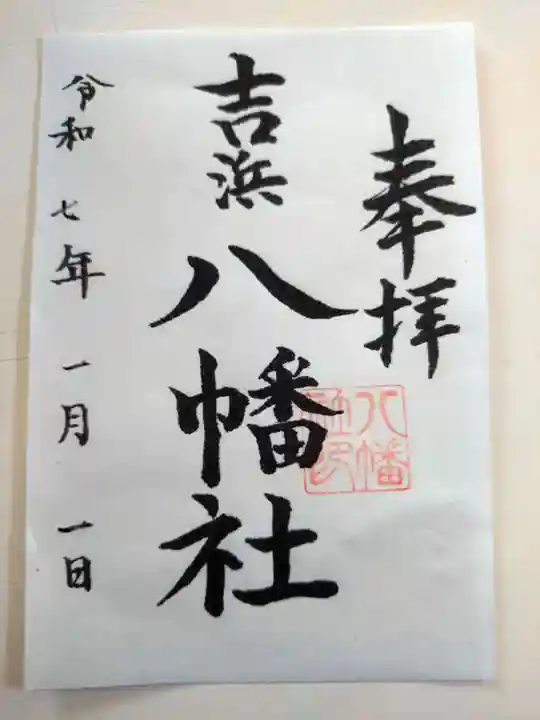 奉拝
吉浜
八幡社
八幡
社印
令和七年一月一日